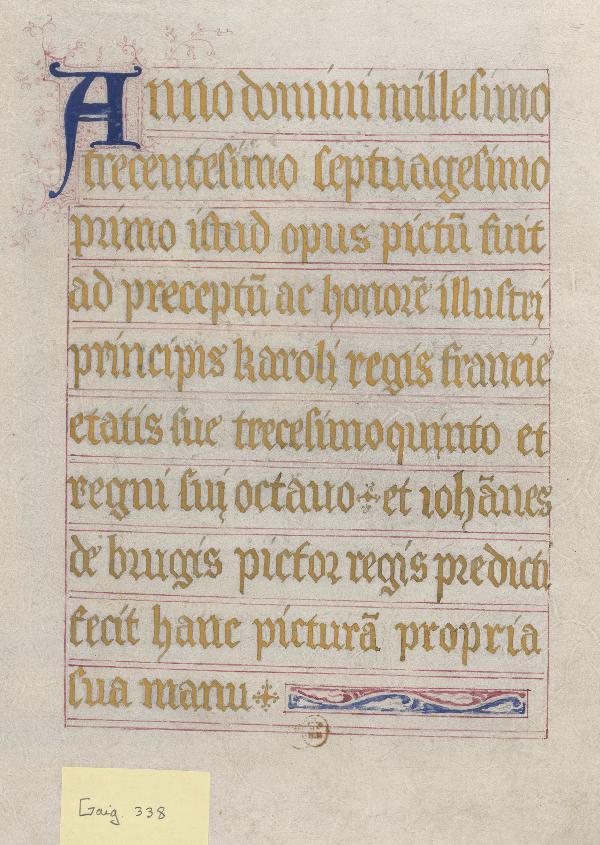 Anno domini millesimo
trecentesimo septuagesimo
primo istud opus pictū fuit
ad preceptū ac honorē illustri
principis karoli regis francie
etatis sue trecesimoquinto et
regni sui octavo et iohānes
de brugis pictor regis predicti
fecit hanc picturā propria
sua manu
Gaig. 338